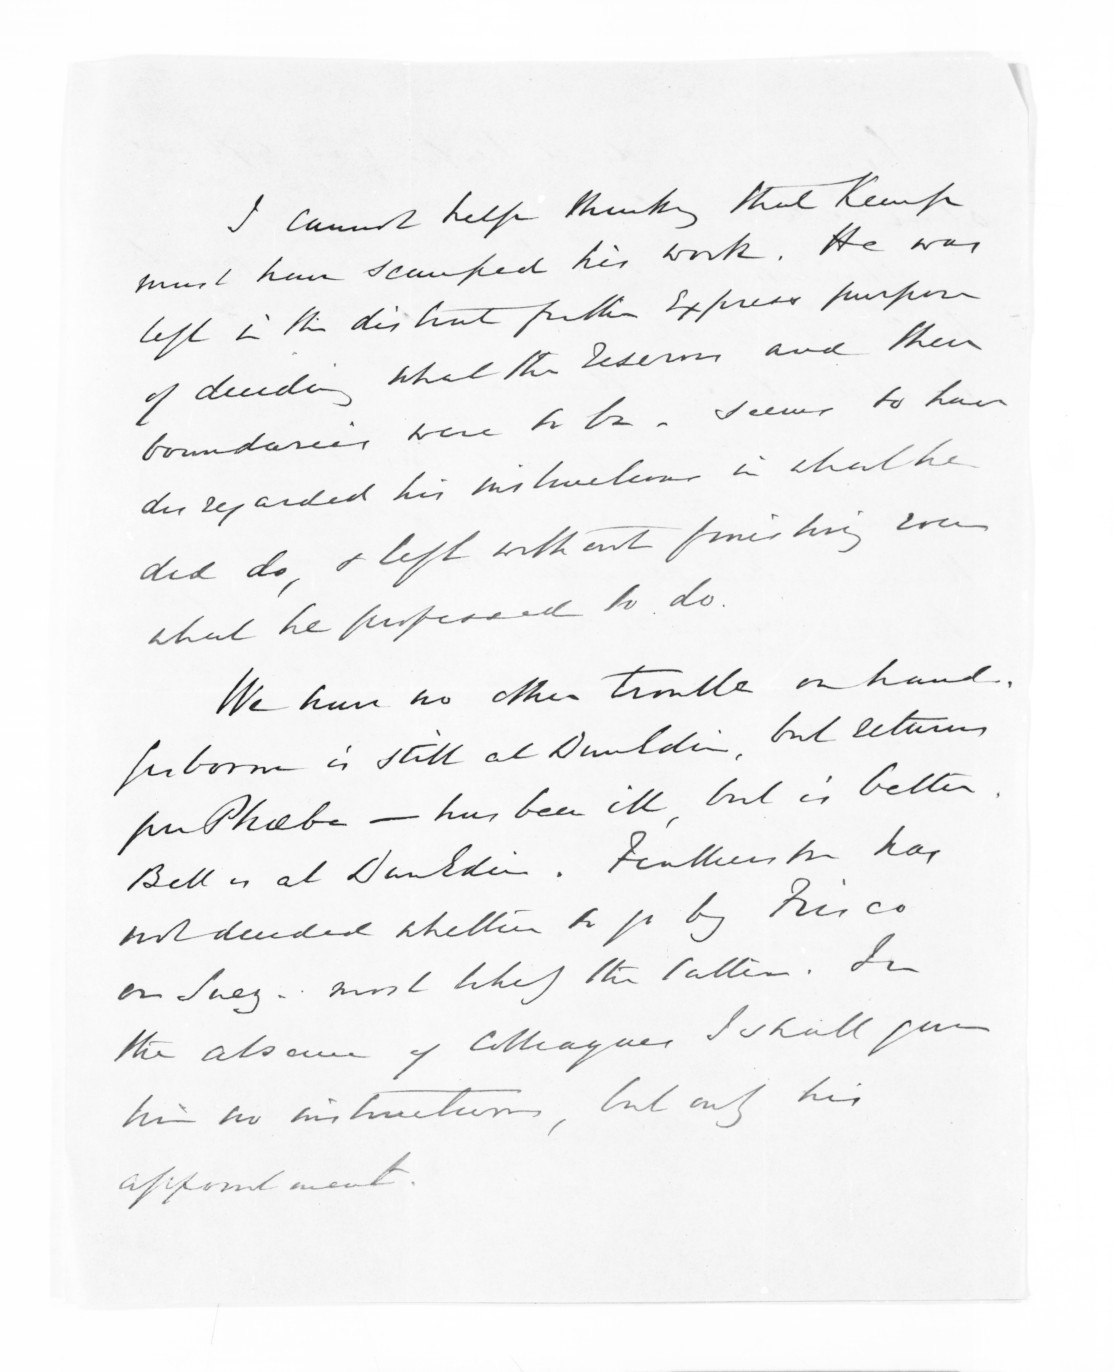 I cannot help thinking that Kemp
must have scamped his work. He was
left in the district for the express purpose
of deciding what the reserves and their
boundaries were to be. Seems to have
disregarded his instructions in what he
did do, & left without finishing even
what he professed to do.
We have no other trouble on hand.
Gisborne is still at Dunedin, but returns
per Phœbe — has been ill, but is better.
Bell is at Dunedin. Featherston has
not decided whether to go by Frisco
or Suez. most likely the latter. In
the absence of Colleagues I shall give
him no instructions, but only his
appointment.